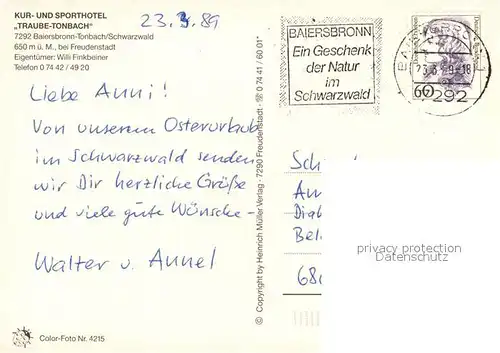 KUR- UND SPORTHOTEL
„TRAUBE-TONBACH"
7292 Baiersbronn-Tonbach/Schwarzwald
650 m ü. M., bei Freudenstadt
Eigentümer: Willi Finkbeiner
Telefon 0 74 42 / 49 20
23. 3. 89
Liebe Anni!
Von unserem Osterurlaub
im Schwarzwald senden
wir Dir herzliche Grüße
und viele gute Wünsche -
Walter u. Annel
Color-Foto Nr. 4215
© Copyright by Heinrich Müller Verlag · 7290 Freudenstadt · ☏ 0 74 41 / 60 01
BAIERSBRONN
Ein Geschenk
der Natur
im
Schwarzwald
60
7292
Sch
An
Bel
privacy protection
Datenschutz
680